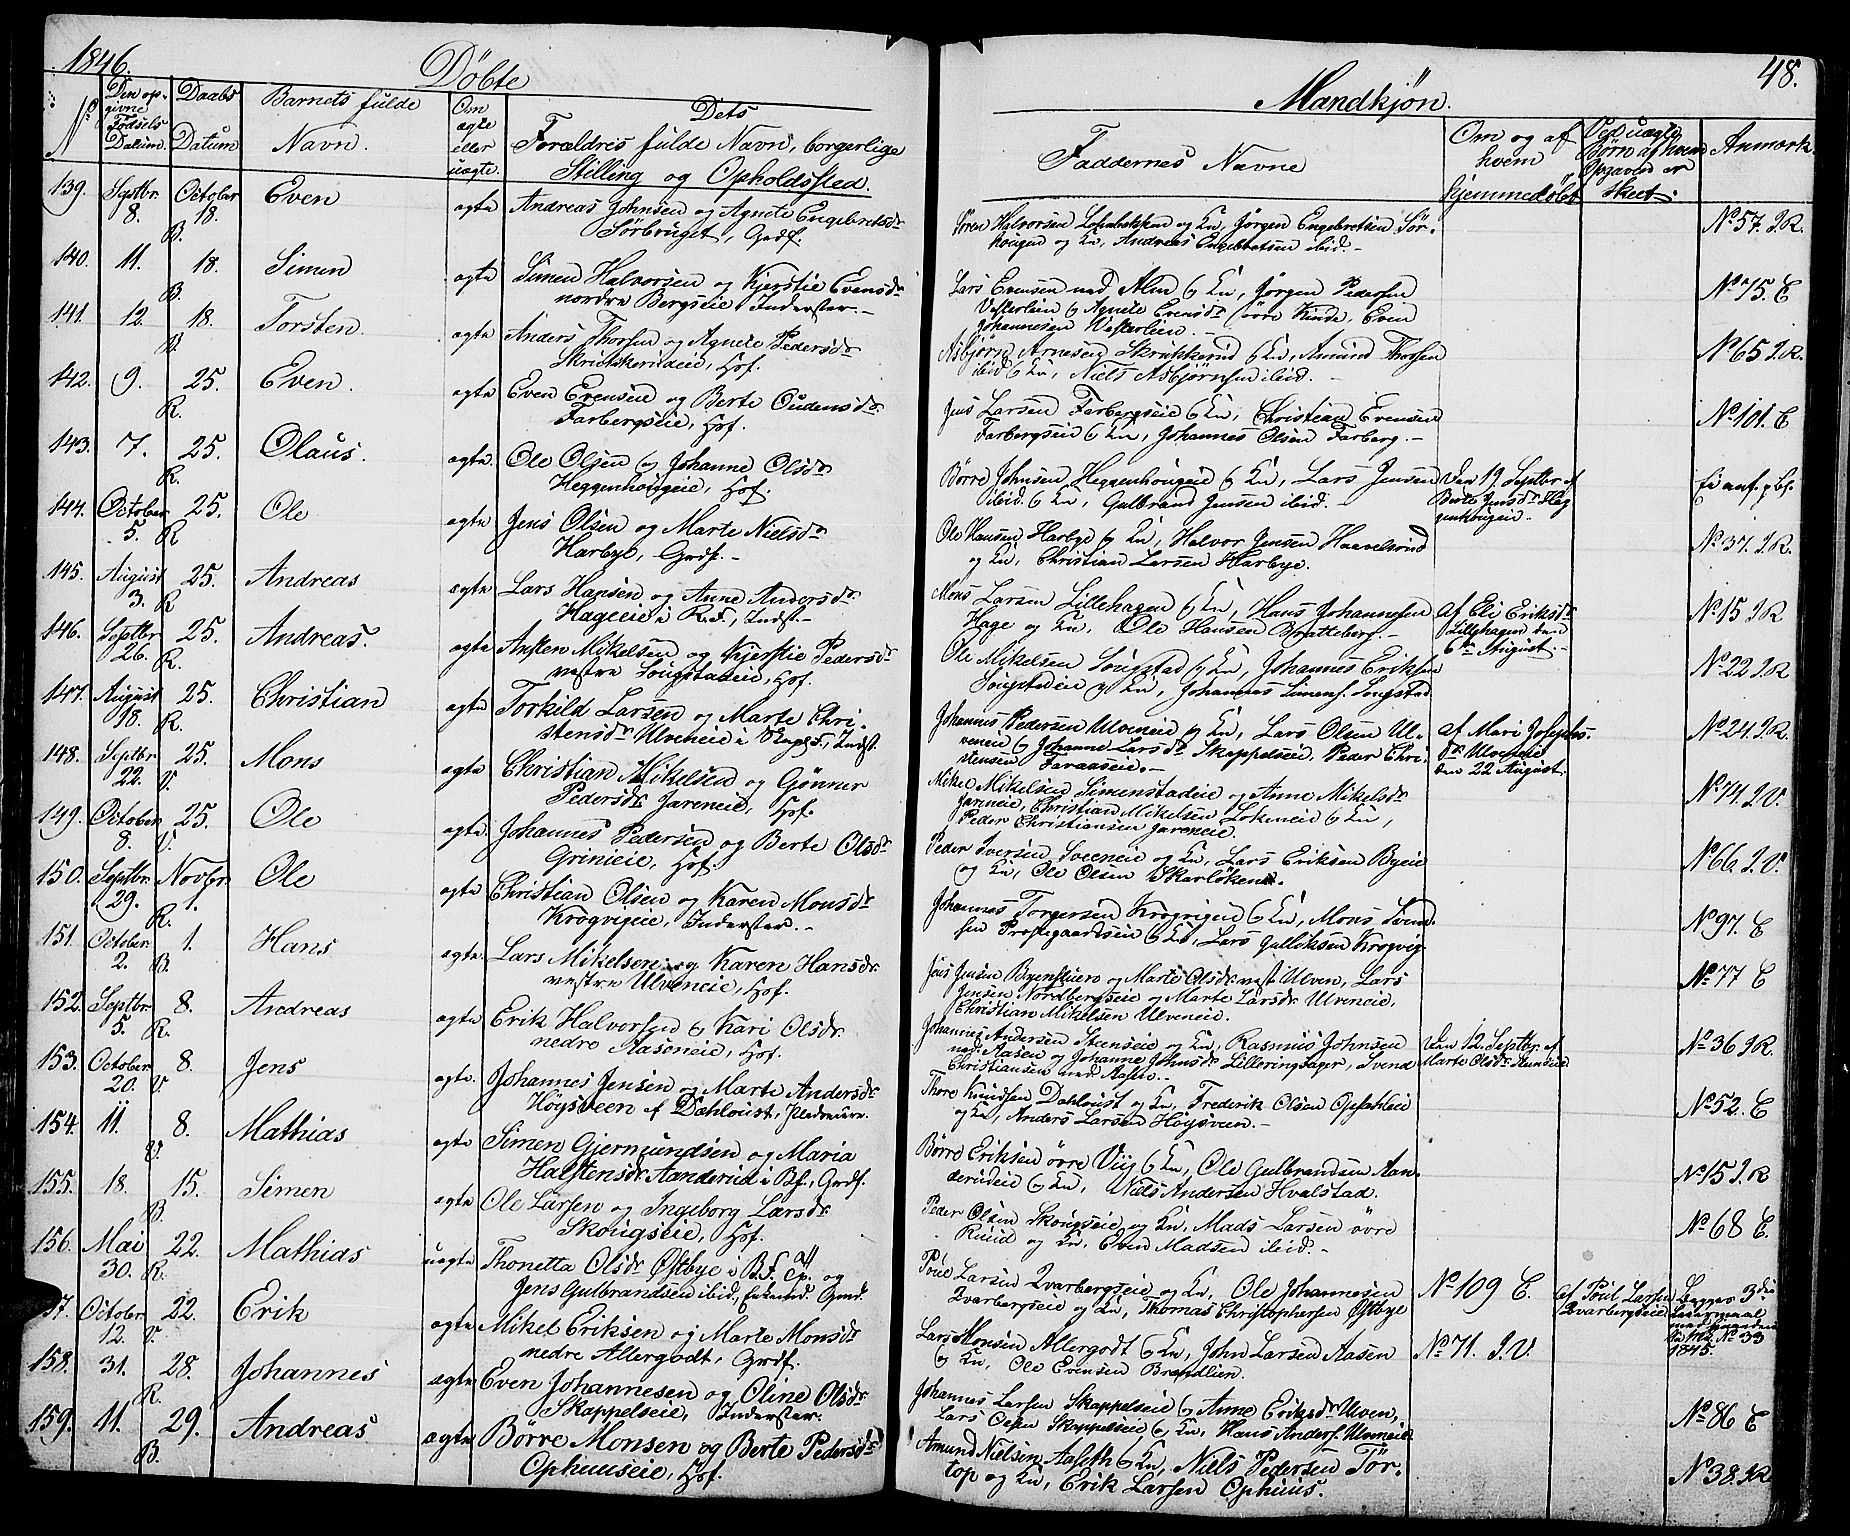 1846.
Döbte
Mandkjøn.
48.
No
Den op-
givne
Fødsels
Datum.
Daabs
Datum
Barnets fulde
Navn.
Om
ægte
eller
uægte.
Dets
Forældres fulde Navn, borgerlige
Stilling og Opholdssted.
Faddernes Navne
Om og af
hvem
hjemmedøbt
Ved uægte
Børn af hvem
Opgaven er
Skeet.
Anmærk.
139. Septbr. October Even ægte Andreas Johnsen og Agnete Engebretsdr
8. B. 18. Sörbruget, Grdf.
Sören Halvorsen og Kn, Jørgen Engebretsen Sör-
hougen og Kn, Andreas Engebretsen ibid.-
No 57. I.R.
140. 11. 18. Simen ægte Simen Halvorsen og Kjerstie Evensdr
B. nordre Bergseie, Inderster.-
Lars Evensen ned Alm og Kn, Jørgen Pedersen
Vesterleien og Agnete Evensdr övre Kinde, Even
Johannesen Vesterleien.-
No 75. E
141. 12. 18. Torsten. ægte Anders Thorsen og Agnete Pedersdr
B. Hof.
Asbjörn Arnesen Skrukkerud og Kn, Amund Thorsen
ibid og Kn, Niels Asbjørnsen ibid.-
No 65 I.R.
142. 9. 25. Even. ægte Even Evensen og Berte Oudensdr
R. Farbergseie, Hof.
Jens Larsen Farbergseie og Kn, Christian Evensen
Farbergseie og Kn, Johannes Olsen Farberg.-
No 101. E
143. 7. 25. Olaus. ægte. Ole Olsen og Johanne Olsdr
R. Heggenhougeie, Hof.
Börre Johnsen Heggenhougeie og Kn, Lars Jensen
ibid. og Kn, Gulbrand Jensen ibid.-
Den 19 Septbr af
Berte Jensdr Heg
genhougeie.
144. October 25. Ole ægte Jens Olsen og Marte Nielsdr
5. R Harbye, Grdf.-
Ole Hansen Harbye og Kn, Halvor Jensen
og Kn, Christian Larsen Harbye.
No 37. I.R.
145. August 25. Andreas ægte Lars Hansen og Anne Andersdr
3. R Hageeie i R.F., Indst.-
Mons Larsen Lillehagen og Kn, Hans Johannesen
Hage og Kn, Ole Hansen Bratteberg.-
af Eli Eriksdr
Lillehagen den
6te August.-
No 15 I.R
146. Septbr 25. Andreas. ægte Ansten Mikelsen og Kjerstie Pedersdr
26. R. vestre Sougstadeie, Hof.
Ole Mikelsen Sougstad og Kn, Johannes Eriksen
Sougstadeie og Kn, Johannes Simens. Sougstad
No 22 I.R
147. August 25. Christian ægte Torkild Larsen og Marte Chri-
18. R. stensdr Ulveneie i Indst.
Johannes Pedersen Ulveneie og Kn, Lars Olsen Ul-
veneie og Johanne Larsdr Skappelseie, Peder Chri-
stensen
af Mari Josephs-
dr Ulveneie
den 22 August.
No 24. I.R.
148. Septbr 25. Mons ægte Christian Mikelsen og Gönner
22. V. Pedersdr Jareneie, Hof.
Mikel Mikelsen Simenstadeie og Anne Mikelsdr
Jareneie, Christian Mikelsen Lokeneie og Kn,
Peder Christiansen Jareneie.
No 74. I.V.
149. October 25. Ole ægte. Johannes Pedersen og Berte Olsdr
8. V. Grinieie, Hof.
Peder Iversen Sveeneie og Kn, Lars Eriksen Byeie
og Kn, Ole Olsen Skarlöken.
No 66. I.V.
150. Septbr. Novbr. Ole ægte Christian Olsen og Karen Monsdr
29. R. 1. Krogvigeie, Inderster.-
Johannes Torgersen Krogvigeie og Kn, Mons Svend-
sen Prestgaardseie og Kn, Lars Gulliksen Krogvig.
No 97. E
151. October. 1. Hans ægte. Lars Mikelsen og Karen Hansdr.
2. B. vestre Ulveneie, Hof.
Jens Jensen og Marte Olsdr. vest. Ulven, Lars
Jensen Nordbergseie og Marte Larsdr. Ulveneie,
Christian Mikelsen Ulveneie.
No 77 E
152. Septbr. 8. Andreas ægte Erik Halvorsen og Kari Olsdr.
5. R. nedre Aaseneie, Hof.
Johannes Andersen Steenseie og Kn, Rasmus Johnsen
ned. Aasen og Johanne Johnsdr. Lilleringsager, Svend
Christiansen ned. Aasen.-
Den 12. Septbr. af
Marte Olsdr.
No 36 I.R.
153. October 8. Jens ægte. Johannes Jensen og Marte Andersdr.
20. V. Höysveen af Dæhlqust,
Thore Knudsen Dæhlqust og Kn, Frederik Olsen Opsahleie
og Kn, Anders Larsen Höysveen.-
No 52. E
154. 11. 8. Mathias ægte Simen Gjermundsen og Maria
V. Halstensdr. Aanderud i B.F., Grdf.
Börre Eriksen övre Viig og Kn, Ole Gulbrandsen Aan-
derudeie og Kn, Niels Andersen Hvalstad.
No 15 I.R
155. 18. 15. Simen ægte Ole Larsen og Ingeborg Larsdr
B. Skougseie, Hof.
Peder Olsen Skougseie og Kn, Mads Larsen övre
Ruud og Kn, Even Madsen ibid.-
No 68 E.
156. Mai 22. Mathias uægte Thonetta Olsdr Østbye i B.F. og
30. R. Jens Gulbrandsen ibid,
Poul Larsen Qvarbergseie og Kn, Ole Johannesen
Qvarbergseie og Kn, Thomas Christophersen Østbye
No 109 E.
af Poul Larsen
Qvarbergseie
Begges 3die
Leiermaal
No 33
1845.
157. October 22. Erik ægte Mikel Eriksen og Marte Monsdr
12. V. nedre Allergodt, Grdf.
Lars Monsen Allergodt og Kn, John Larsen Aasen
og Kn, Ole Evensen Brandlien.
No 71. I.V.
158. 31. 28. Johannes ægte Even Johannesen og Oline Olsdr.
R. Skappelseie, Inderster.
Johannes Larsen Skappelseie og Anne Eriksdr Ulven,
Lars Olsen Skappelseie og Kn, Hans Anders. Ulveneie
No 86 E
159. 11. 29. Andreas ægte Börre Monsen og Berte Pedersdr
B. Ophuuseie, Hof.
Amund Nielsen Aaseth og Kn, Niels Pedersen Tör-
top og Kn, Erik Larsen Ophuus.
No 38. I.R